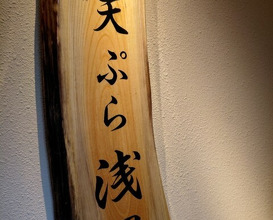 天ぷら 浅